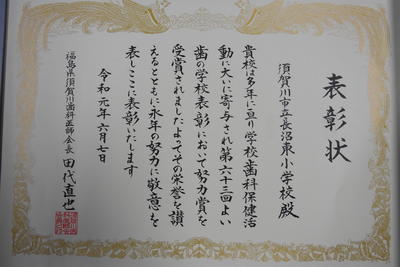 表彰状
須賀川市立長沼東小学校殿
貴校は多年に亘り学校歯科保健活
動に大いに寄与され第六十三回よい
歯の学校表彰において努力賞を
受賞されましたよってその栄誉を讃
えるとともに永年の努力に敬意を
表しここに表彰いたします
令和元年六月七日
福島県須賀川歯科医師会長 田代直也